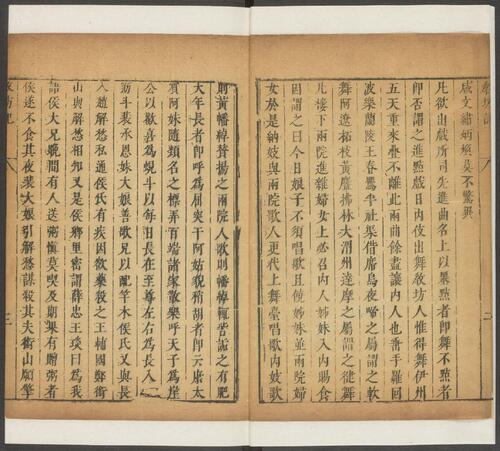 教坊記
二
成文繡炳煥莫不驚異
凡欲出戲所司先進曲名上以墨點者即舞不點者
即否謂之進點戲日內伎出舞教坊人惟得舞伊州
五天重來疊不離此兩曲餘盡讓內人也垂手羅回
波樂蘭陵王春鶯半社渠借席烏夜啼之屬謂之軟
舞阿遼柘枝黃麞拂林大渭州達摩之屬謂之健舞
凡樓下兩院進雜婦女上必召內人姊妹入內賜食
因謂之曰今日娘子不須唱歌且饒姊妹並兩院婦
女於是納妓與兩院歌人更代上舞臺唱歌內妓歌
則黃幡綽贊揚之兩院人歌則幡綽輒訾詬之有肥
大年長者即呼為屈突干阿姑貌稍胡者即云康太
賓阿妹隨類名之標弄百端諸家散樂呼天子為崖
公以歡喜為蜆斗以每日長在至尊左右為長入
筋斗裴承恩妹大娘善歌兄以配竿木侯氏又與長
入趙解愁私通侯氏有疾因欲藥殺之王輔國鄭銜
山與解愁相知又是侯鄉里密謂薛忠王琰曰為我
語侯大兄晚間有人送粥慎莫喫及期果有贈粥者
侯遂不食其夜裴大娘引解愁謀殺其夫銜山願擎
教坊記
三